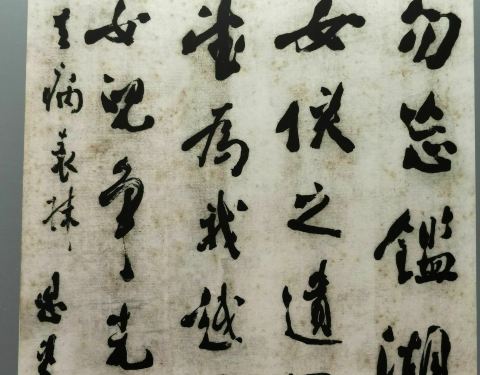 勿忘鑑湖
女俠之遺
望為我越
女兒爭光
去病表妹 恩